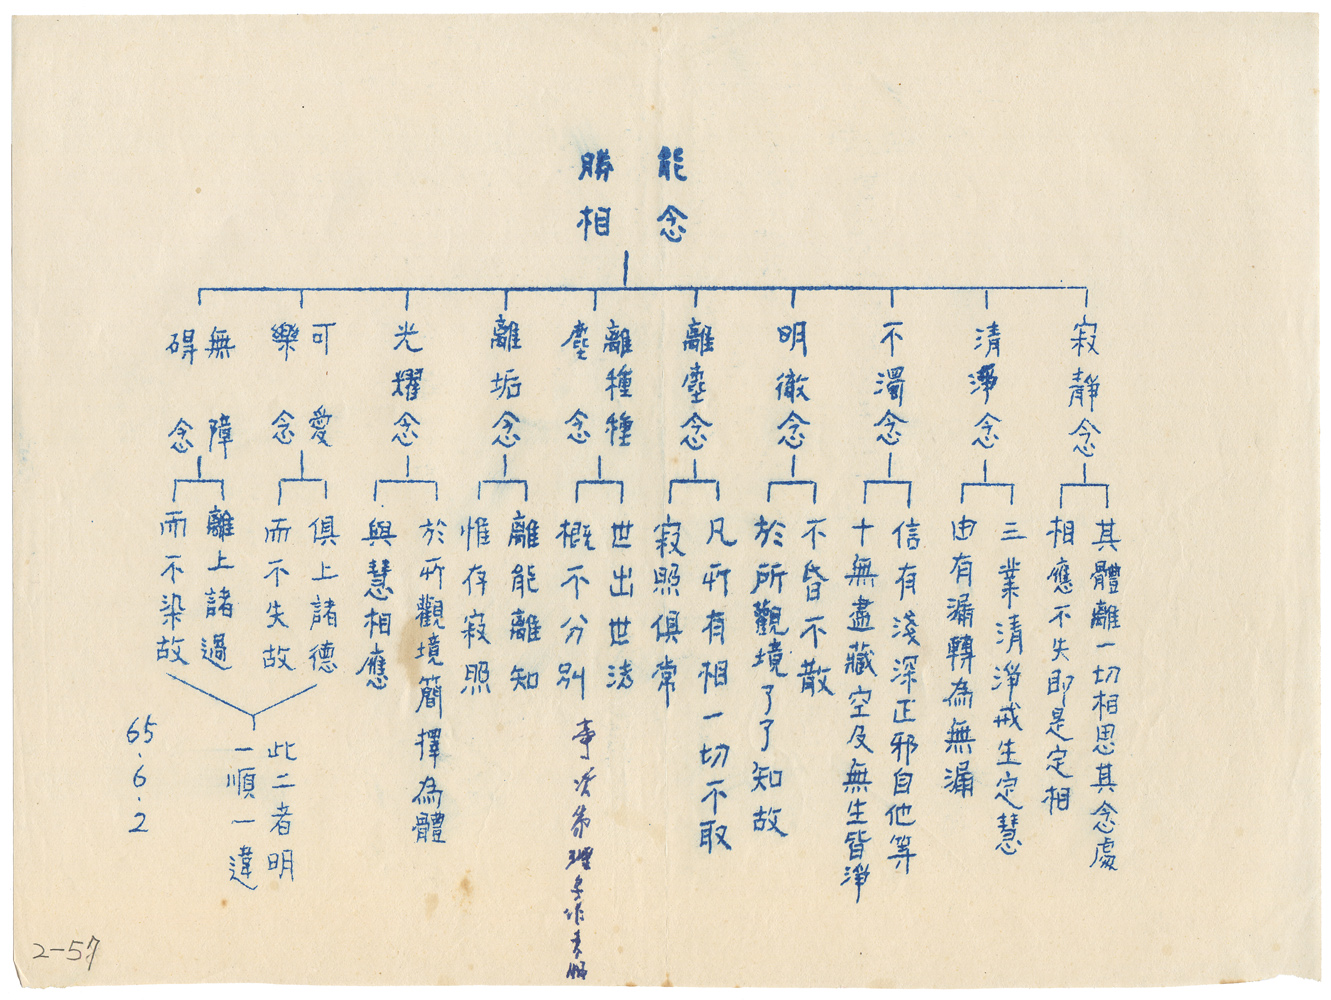 能念
勝相
寂靜念
其體離一切相思其念處
相應不失即是定相
清淨念
三業清淨戒生定慧
由有漏轉為無漏
不濁念
信有淺深正邪自他等
十無盡藏空及無生皆淨
明徹念
不昏不散
於所觀境了了知故
離塵念
凡所有相一切不取
寂照俱常
離種種
塵念
世出世法
概不分別
離垢念
離能離知
惟存寂照
光耀念
於所觀境簡擇為體
與慧相應
可愛
樂念
俱上諸德
而不失故
無障
礙念
離上諸過
而不染故
此二者明
一順一違
65.6.2
2-57